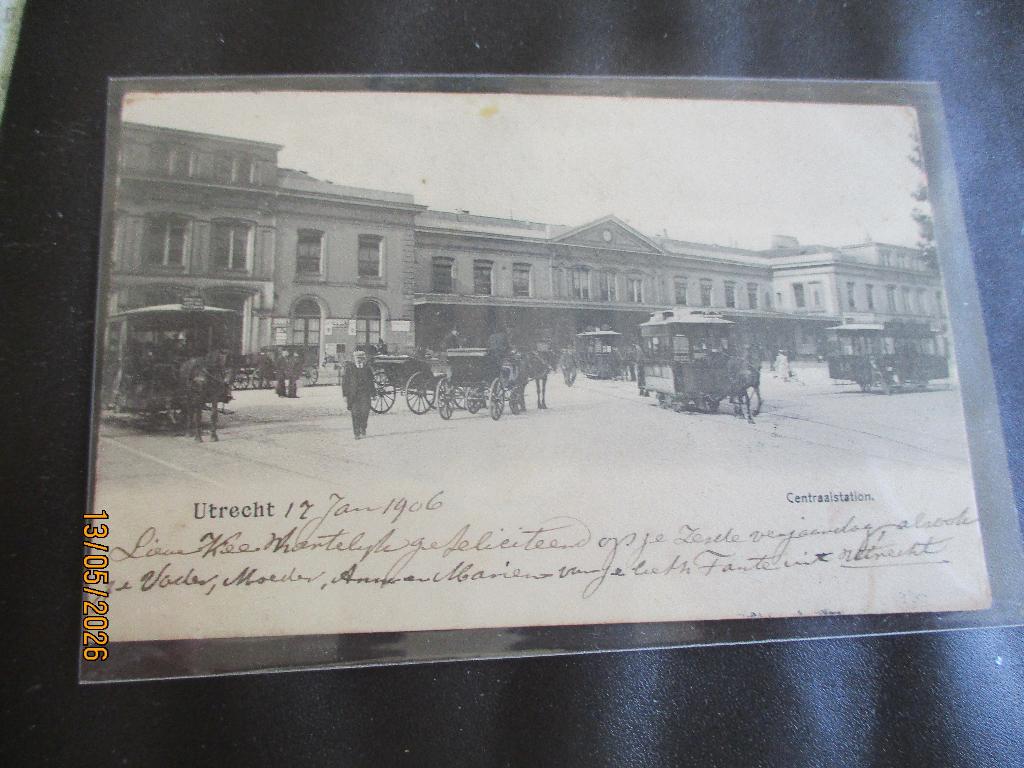 Utrecht 17 Jan 1906
Centraalstation.
Lieve Kee Hartelijk gefeliciteerd op je Zesde verjaardag, alsook
je Vader, Moeder, Anna en Marien van je liefh Tante uit Uttrecht
13/05/2026